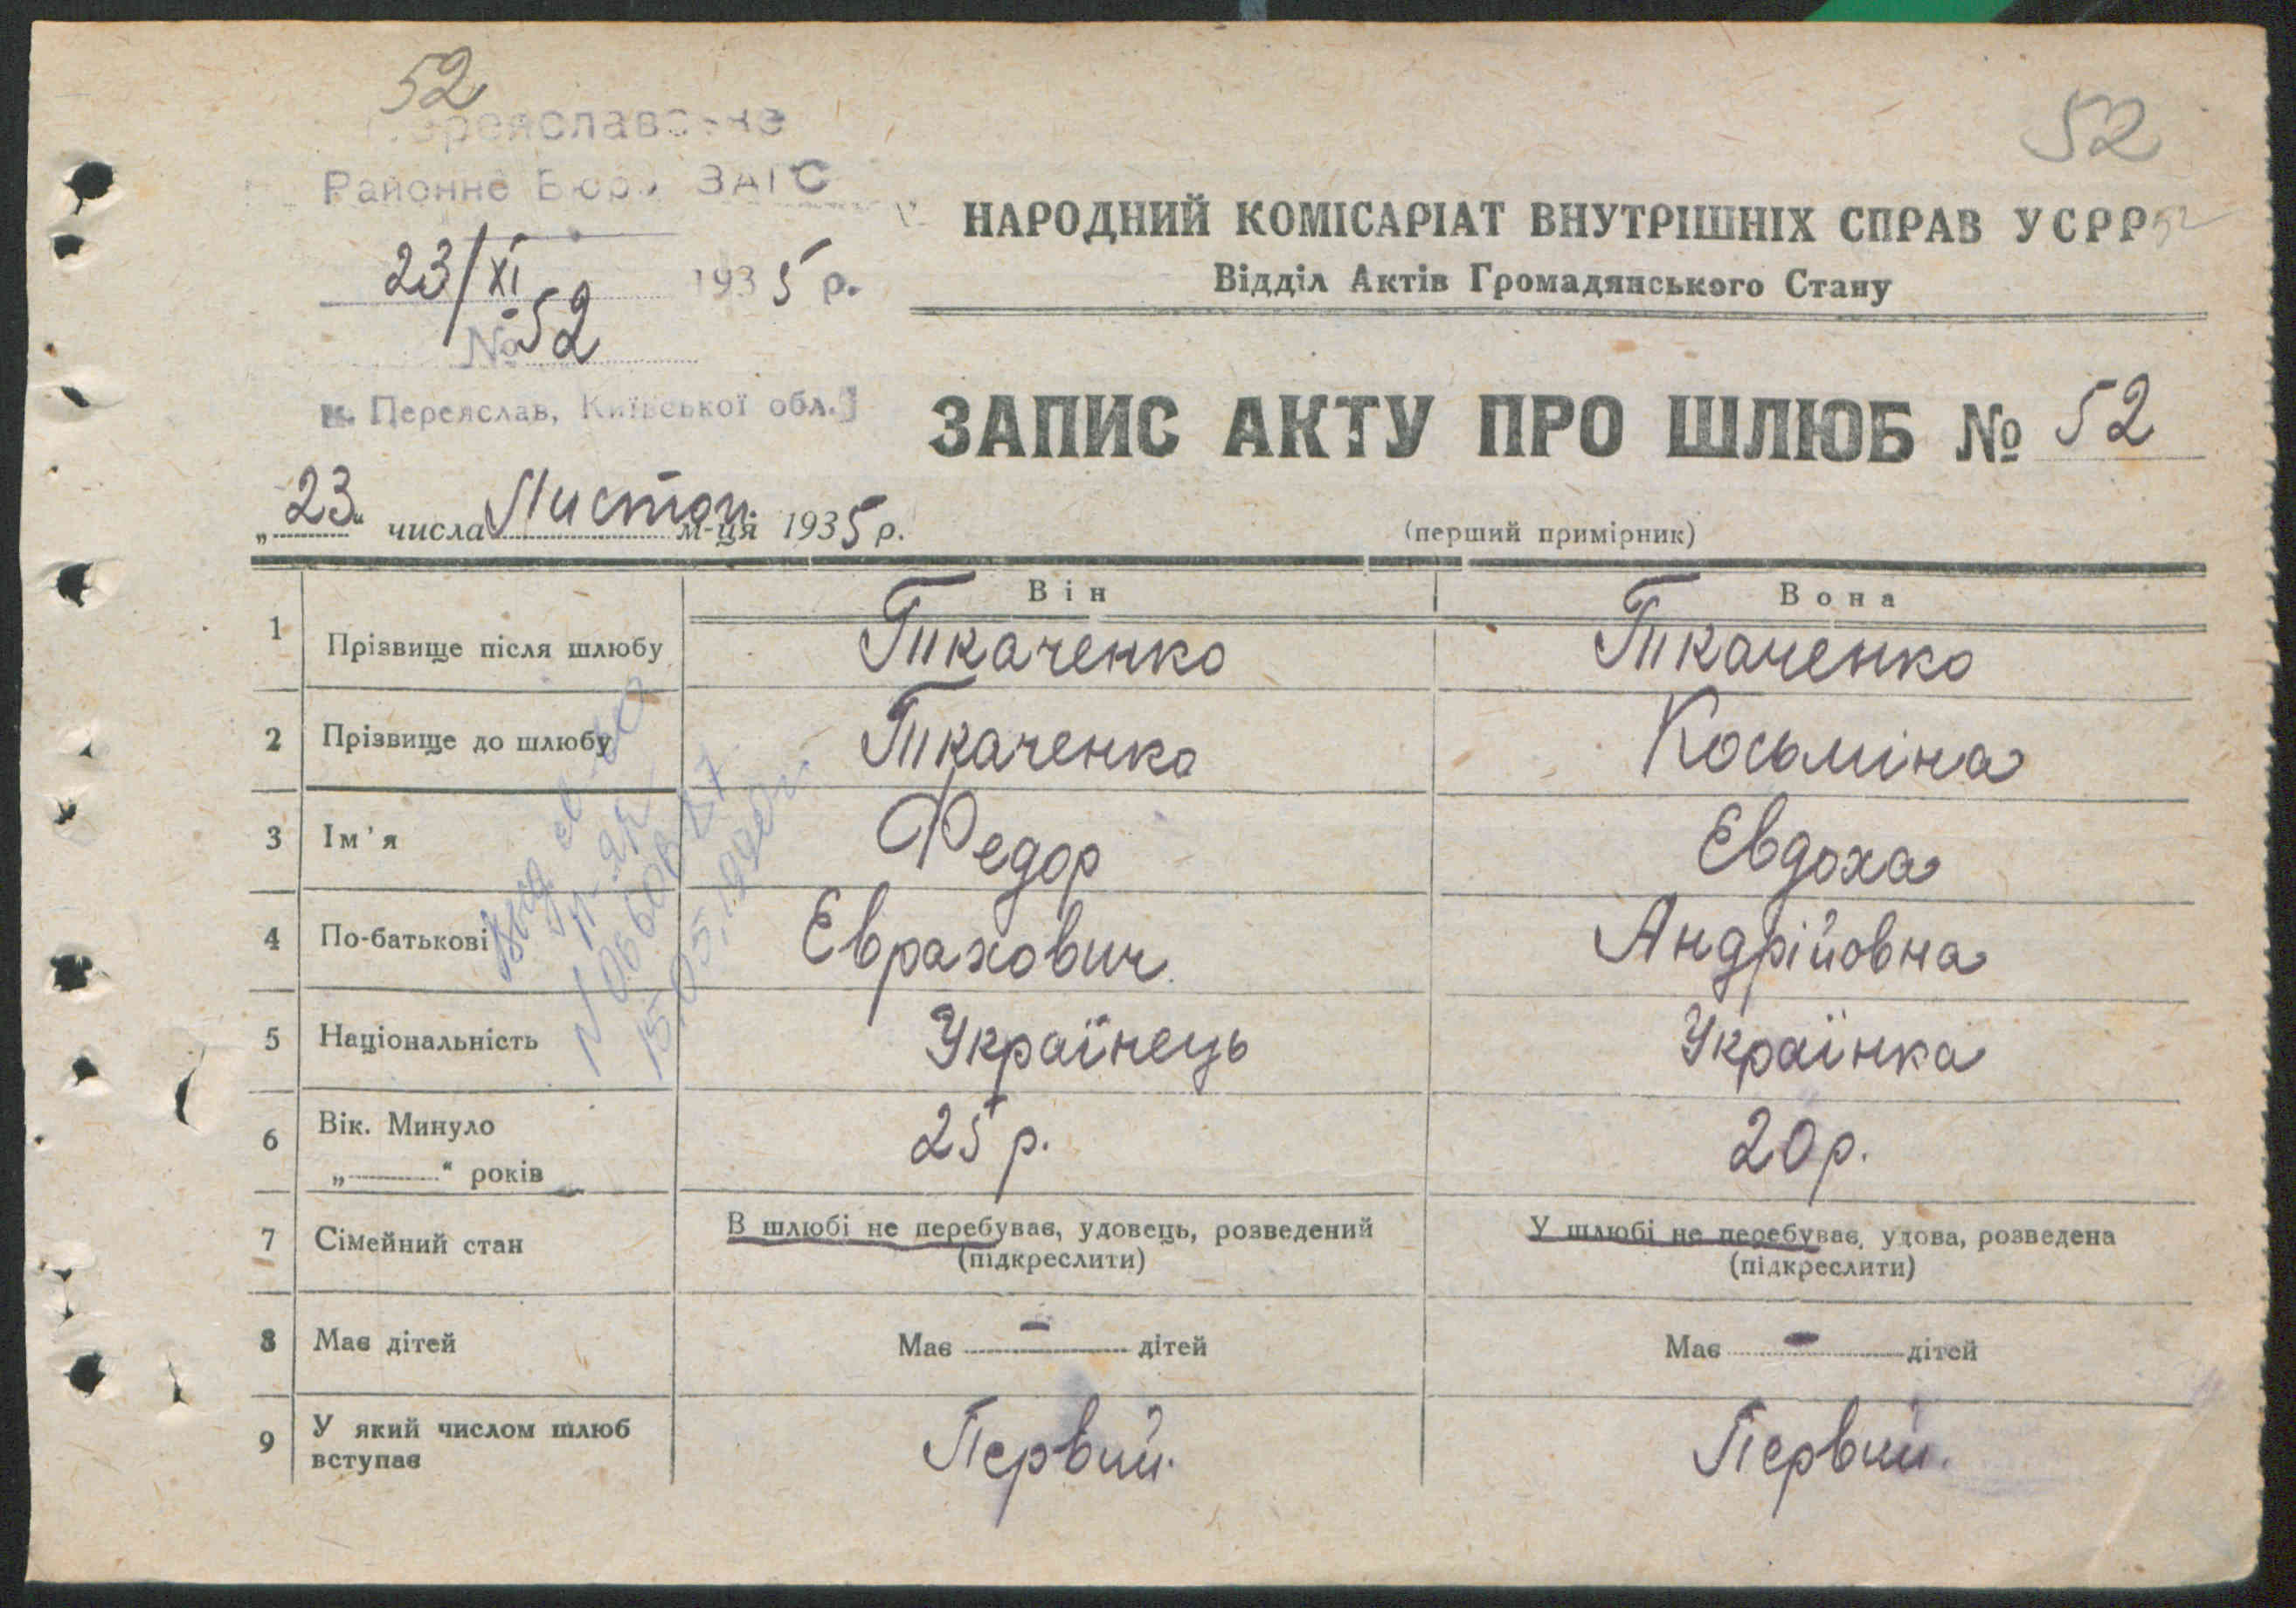 52
52
Переяславське
Районне Бюро ЗАГС
23/XI 1935 р.
№ 52
м. Переяслав, Київської обл.
НАРОДНИЙ КОМІСАРІАТ ВНУТРІШНІХ СПРАВ УСРР 52
Відділ Актів Громадянського Стану
ЗАПИС АКТУ ПРО ШЛЮБ № 52
„23“ числа Листоп. м-ця 1935 р.
(перший примірник)
Він Вона
1 Прізвище після шлюбу Ткаченко Ткаченко
2 Прізвище до шлюбу Ткаченко Косьміна
3 Ім'я Федор Евдоха
4 По-батькові Еврахович Андрійовна
5 Національність Українець Українка
6 Вік. Минуло 25 р. 20 р.
„ “ років
7 Сімейний стан В шлюбі не перебував, удовець, розведений У шлюбі не перебував, удова, розведена
(підкреслити) (підкреслити)
8 Має дітей Має - дітей Має - дітей
9 У який числом шлюб Первий. Первий.
вступає